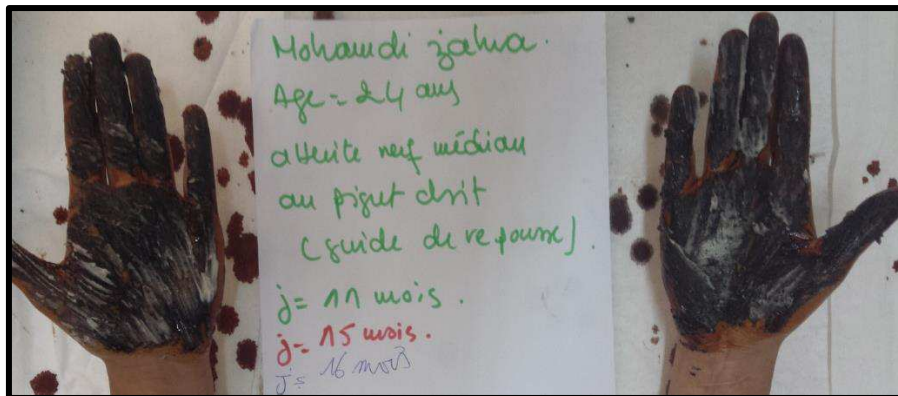 Mohamdi zahra.
Age = 24 ans
atteinte nerf médian
au pignet droit
(guide de repousse).
j = 11 mois.
j = 15 mois.
j = 16 mois